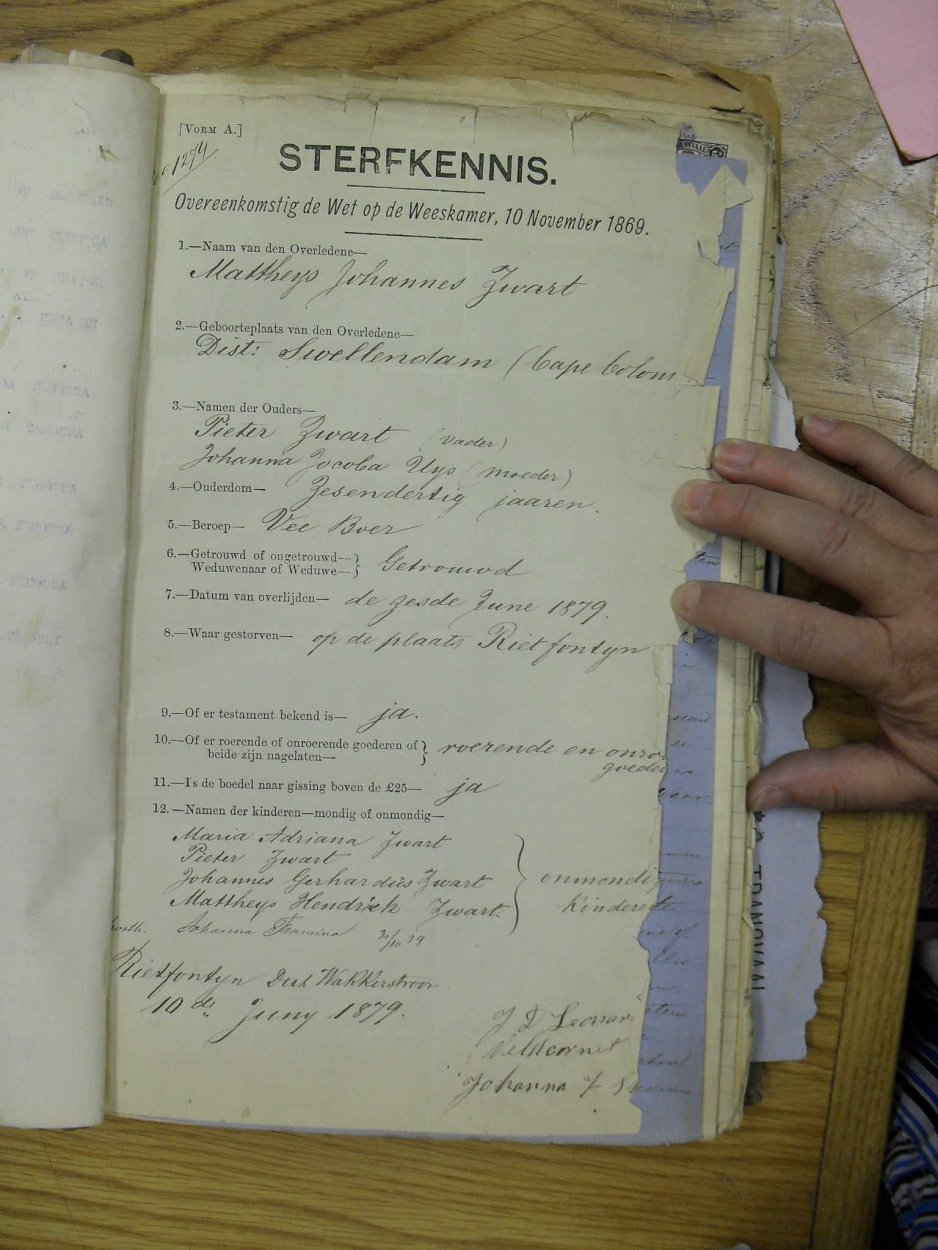 [VORM A.]
1274
STERFKENNIS.
Overeenkomstig de Wet op de Weeskamer, 10 November 1869.
1.—Naam van den Overledene—
Mattheys Johannes Zwart
2.—Geboorteplaats van den Overledene—
Dist: Swellendam (Cape Colony
3.—Namen der Ouders—
Pieter Zwart (vader)
Johanna Jocoba Uys (moeder)
4.—Ouderdom— Zesendertig jaaren.
5.—Beroep— Vee Boer
6.—Getrouwd of ongetrouwd—} Getrouwd
Weduwenaar of Weduwe—}
7.—Datum van overlijden— de zesde June 1879.
8.—Waar gestorven— op de plaats Rietfontyn
9.—Of er testament bekend is— ja.
10.—Of er roerende of onroerende goederen of } roerende en onro
beide zijn nagelaten— goeder
11.—Is de boedel naar gissing boven de £25— ja
12.—Namen der kinderen—mondig of onmondig—
Maria Adriana Zwart
Pieter Zwart
Johannes Gerhardus Zwart } onmondi
Mattheys Hendrick Zwart. kinder
Johanna 30/10 79
Rietfontyn Dist Wakkerstroom
10de Juny 1879.
J D
Veldcornet
Johanna J
TRANSVAAL